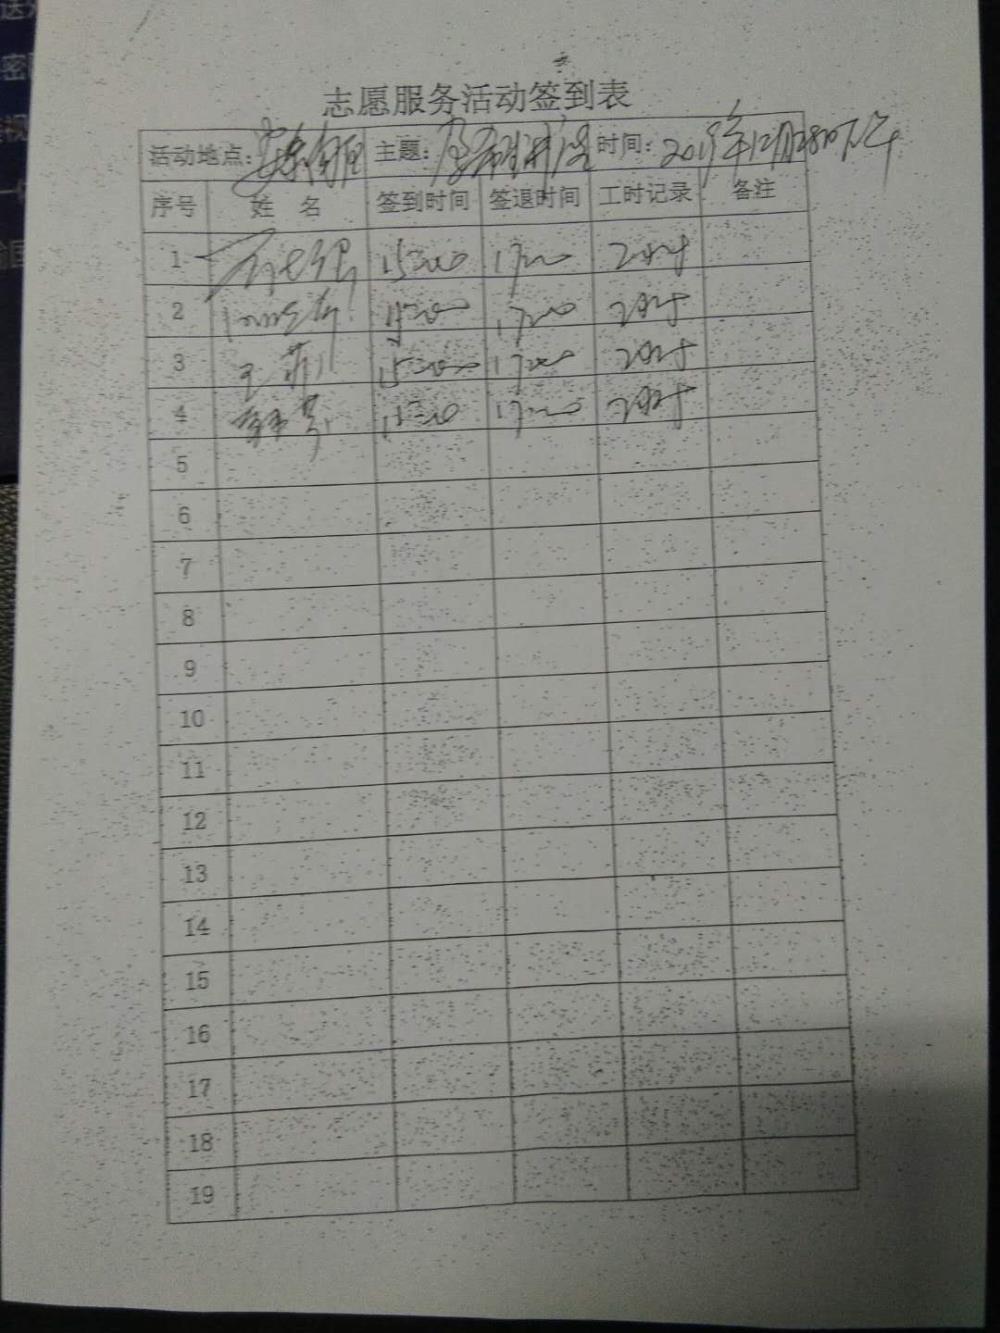 志愿服务活动签到表
活动地点: 主题: 时间: 2019年12月28日下午
序号 姓 名 签到时间 签退时间 工时记录 备注
1 15:00 17:00 2小时
2 15:00 17:00 2小时
3 王 15:00 17:00 2小时
4 15:00 17:00 2小时
5
6
7
8
9
10
11
12
13
14
15
16
17
18
19